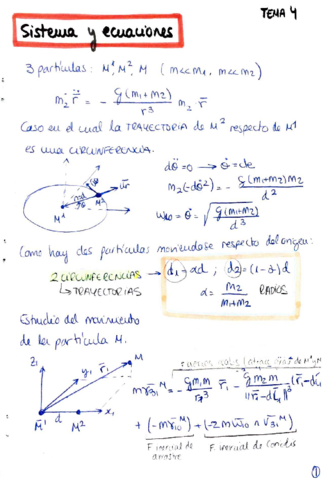 TEMA 4
Sistema y ecuaciones
3 partículas: M¹, M², M (m<<m₁, m<<m₂)
m₂ r̈ = - G(m₁+m₂)/r³ m₂ r̄
Caso en el cual la TRAYECTORIA de M² respecto de M¹
es una CIRCUNFERENCIA.
dθ̈=0 → θ̇=cte
m₂(-dθ̇²) = - G(m₁+m₂)m₂/d²
ω₁₀=θ̇=√(G(m₁+m₂)/d³)
M¹ M² ūr
Como hay dos partículas moviéndose respecto del origen:
2 CIRCUNFERENCIAS → d₁=αd ; d₂=(1-α)d
↳ TRAYECTORIAS
α = m₂/(m₁+m₂) RADIOS
Estudio del movimiento
de la partícula M.
z₁ y₁ r̄₁ M x₁ M¹ d M²
m γ̄₃₁ᴹ = - G m₁ m/r₁³ r̄₁ - G m₂ m/|r̄₁-dī₁|³ (r̄₁-dī₁)
+ (-m γ̄₁₀ᴹ) + (-2m ω̄₁₀ ∧ v̄₃₁ᴹ)
F. inercial de
arrastre
F. inercial de Coriolis
1